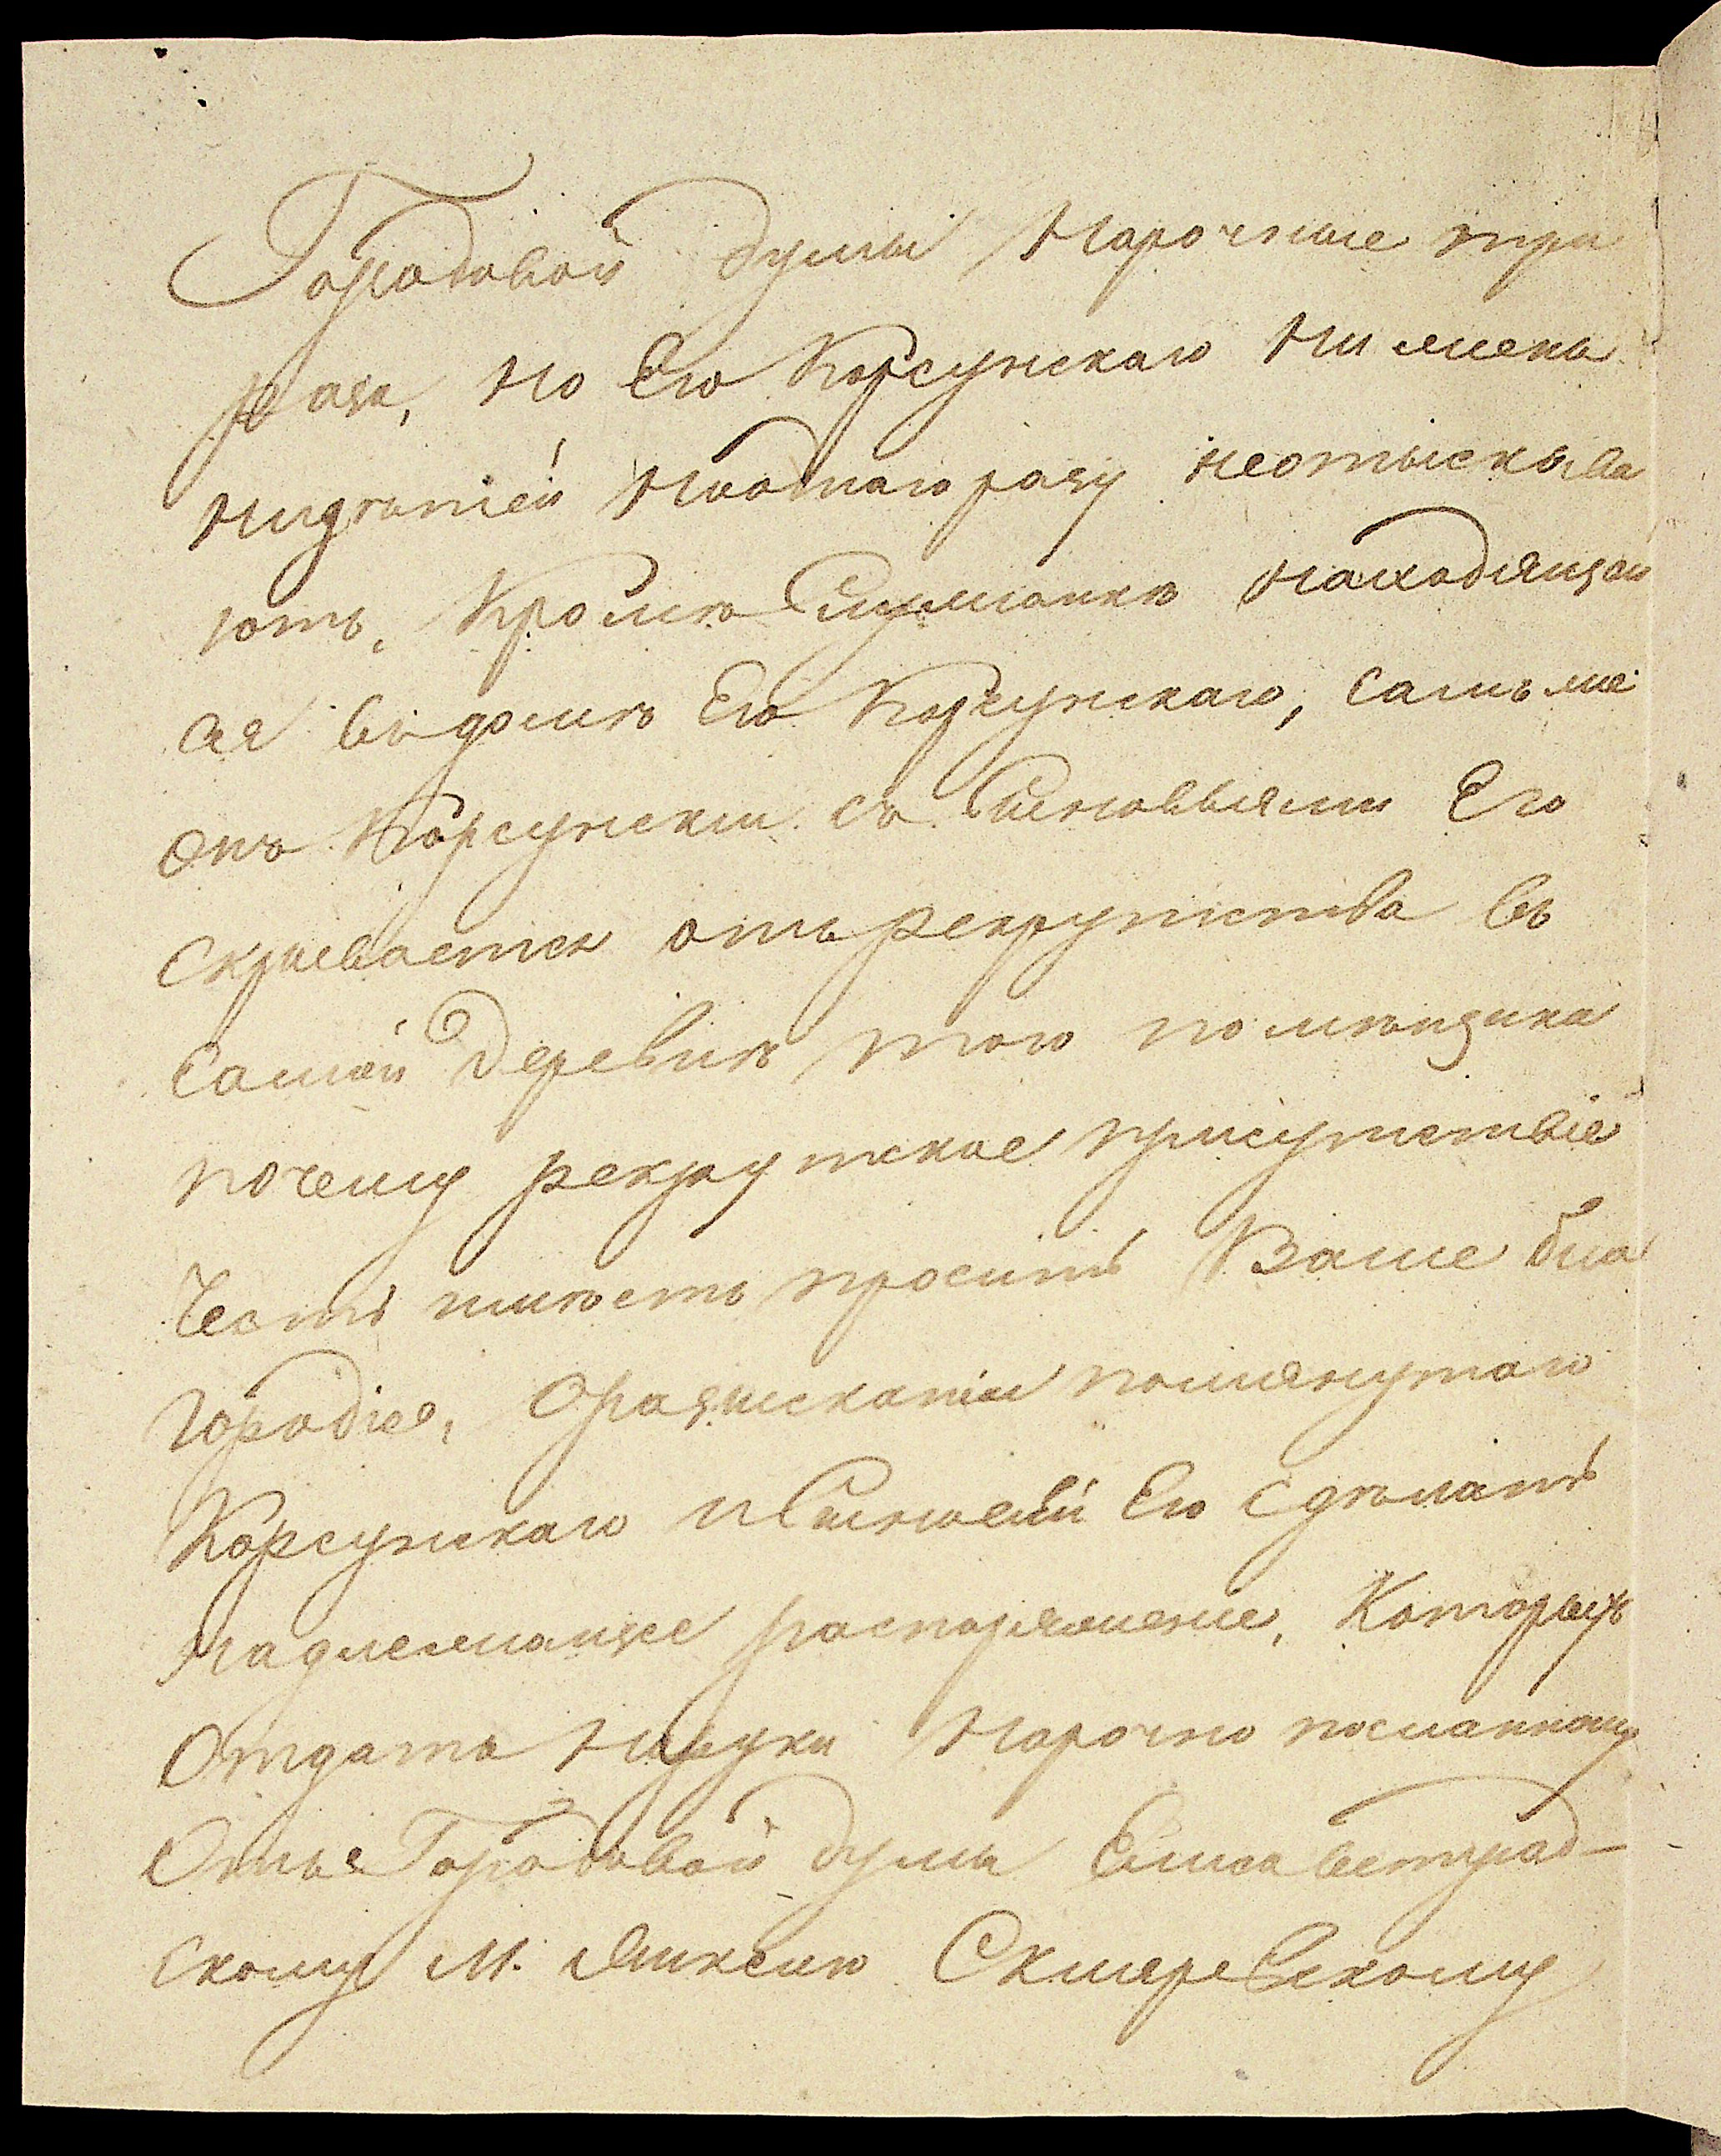 Городовой думы Нарочные три
раза, но Его Корсунскаго ни жены
нидѣтей ниодного разу неотыскива
ютъ, Кромѣ Служанки находящой
ся въ домѣ Его Корсунскаго, самъ же
онъ Корсунски съ Сыновьями Его
скрывается отъ рекрутства въ
самой Деревнѣ того помѣщика
почему рекрутское присутствіе
Честь имѣетъ просить Ваше бла
городіе, Оразысканіи помянутаго
Корсунскаго и Сыновей Его Сдѣлать
надлежащее распоряженіе, Которыхъ
Отдать Наруки Нарочно посланному
Отъ Городовой думы Елисаветград-
скому М. Скляревскому